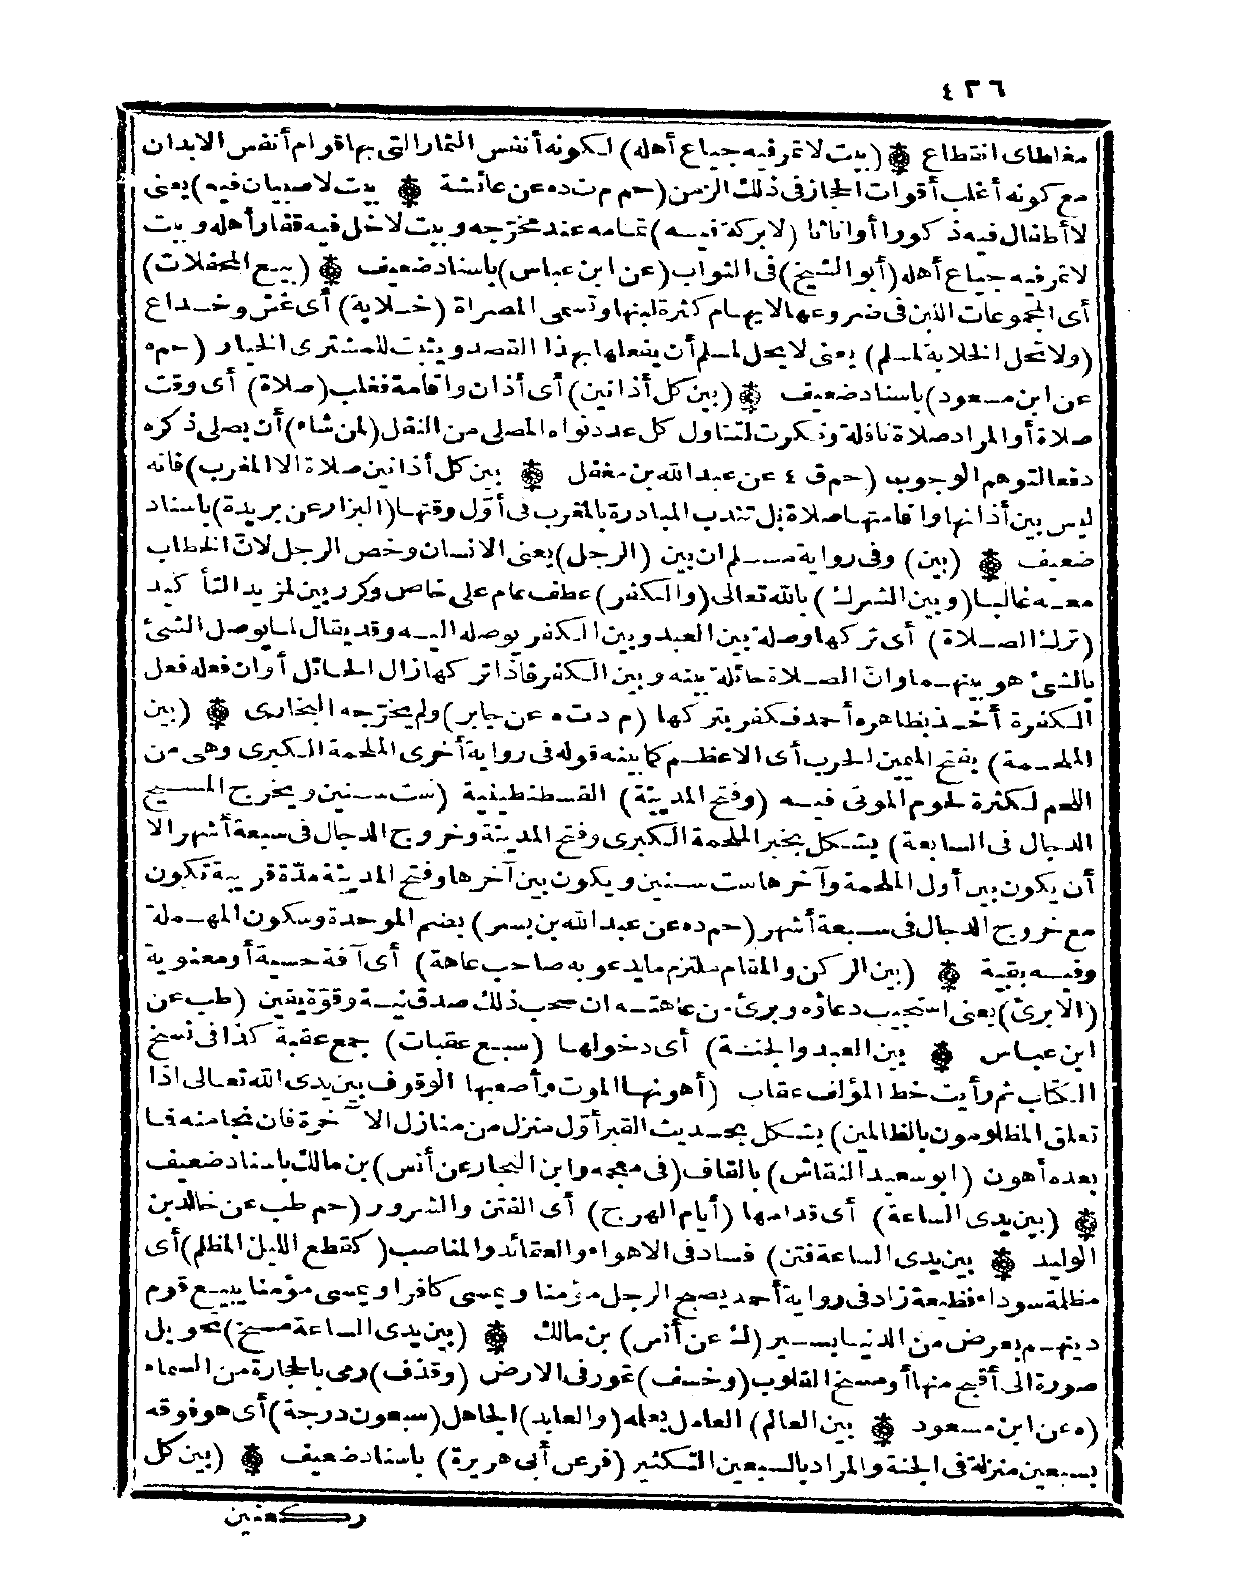 ٤٣٦
مغلطاى انقطاع ۞ (بيت لا تمر فيه جياع أهله) لكونه أنفس الثمار التى بها قوام أنفس الابدان
مع كونه أغلب أقوات الحجاز فى ذلك الزمن (حم م ت د ه عن عائشة ۞ بيت لا صبيان فيه) يعنى
لا أطفال فيه ذكورا أو اناثا (لا بركة فيه) تمامه عند مخرّجه وبيت لا خل فيه قفار أهله وبيت
لا تمر فيه جياع أهله (أبو الشيخ) فى الثواب (عن ابن عباس) باسناد ضعيف ۞ (بيع المحفلات)
أى المجموعات اللبن فى ضروعها لايهام كثرة لبنها وتسمى المصراة (خلابة) أى غش وخداع
(ولا تحل الخلابة لمسلم) يعنى لا يحل لمسلم أن يفعلها بهذا القصد ويثبت للمشترى الخيار (حم ه
عن ابن مسعود) باسناد ضعيف ۞ (بين كل أذانين) أى أذان واقامة فغلب (صلاة) أى وقت
صلاة أو المراد صلاة نافلة ونكرت لتتناول كل عدد نواه المصلى من النفل (لمن شاء) أن يصلى ذكره
دفعا لتوهم الوجوب (حم ق ٤ عن عبد الله بن مغفل ۞ بين كل أذانين صلاة الا المغرب) فانه
ليس بين أذانها واقامتها صلاة بل تندب المبادرة بالمغرب فى أوّل وقتها (البزار عن بريدة) باسناد
ضعيف ۞ (بين) وفى رواية مسلم ان بين (الرجل) يعنى الانسان وخص الرجل لانّ الخطاب
معه غالبا (وبين الشرك) بالله تعالى (والكفر) عطف عام على خاص وكرر بين لمزيد التأكيد
(ترك الصلاة) أى تركها وصلة بين العبد وبين الكفر يوصله اليه وقد يقال لما يوصل الشئ
بالشئ هو بينهما وانّ الصلاة حائلة بينه وبين الكفر فاذا تركها زال الحائل أو ان فعله فعل
الكفرة أخذ بظاهره أحمد فكفر بتركها (م د ت ه عن جابر) ولم يخرّجه البخارى ۞ (بين
الملحمة) بفتح الميمين الحرب أى الاعظم كما بينه قوله فى رواية أخرى الملحمة الكبرى وهى من
اللحم لكثرة لحوم الموتى فيه (وفتح المدينة) القسطنطينية (ست سنين ويخرج المسيح
الدجال فى السابعة) يشكل بخبر الملحمة الكبرى وفتح المدينة وخروج الدجال فى سبعة أشهر الا
أن يكون بين أول الملحمة وآخرها ست سنين ويكون بين آخرها وفتح المدينة مدّة قريبة تكون
مع خروج الدجال فى سبعة أشهر (حم د ه عن عبد الله بن بسر) بضم الموحدة وسكون المهملة
وفيه بقية ۞ (بين الركن والمقام ملتزم ما يدعو به صاحب عاهة) أى آفة حسية أو معنوية
(الا برئ) يعنى استجيب دعاؤه وبرئ من عاهته ان صحب ذلك صدق نية وقوّة يقين (طب عن
ابن عباس ۞ بين العبد والجنة) أى دخولها (سبع عقبات) جمع عقبة كذا فى نسخ
الكتاب ثم رأيت خط المؤلف عقاب (أهونها الموت وأصعبها الوقوف بين يدى الله تعالى اذا
تعلق المظلومون بالظالمين) يشكل بحديث القبر أوّل منزل من منازل الآخرة فان نجا منه فما
بعده أهون (ابو سعيد النقاش) بالقاف (فى معجمه وابن النجار عن أنس) بن مالك باسناد ضعيف
۞ (بين يدى الساعة) أى قدامها (أيام الهرج) أى الفتن والشرور (حم طب عن خالد بن
الوليد ۞ بين يدى الساعة فتن) فساد فى الاهواء والعقائد والمناصب (كقطع الليل المظلم) أى
مظلمة سوداء فظيعة زاد فى رواية أحمد يصبح الرجل مؤمنا ويمسى كافرا ويمسى مؤمنا يبيع قوم
دينهم بعرض من الدنيا يسير (ك عن أنس) بن مالك ۞ (بين يدى الساعة مسخ) تحويل
صورة الى أقبح منها أو مسخ القلوب (وخسف) غور فى الارض (وقذف) رمى بالحجارة من السماء
(ه عن ابن مسعود ۞ بين العالم) العامل بعلمه (والعابد) الجاهل (سبعون درجة) أى هو فوقه
بسبعين منزلة فى الجنة والمراد بالسبعين التكثير (فر عن أبى هريرة) باسناد ضعيف ۞ (بين كل
ركعتين